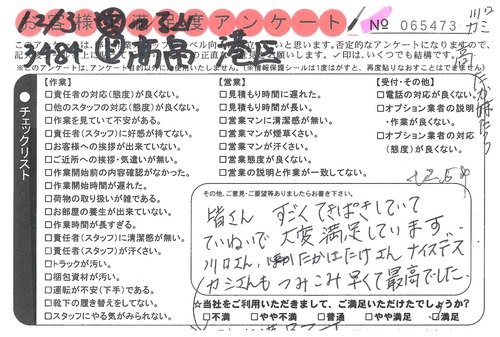 お客様満足度アンケート
№ 065473
12/3
港区
このアンケートは、
※このアンケートは、
チェックリスト
【作業】
□責任者の対応(態度)が良くない。
□他のスタッフの対応(態度)が良くない。
□作業を見ていて不安がある。
□責任者(スタッフ)に好感が持てない。
□お客様への挨拶が出来ていない。
□ご近所への挨拶・気遣いが無い。
□作業開始前の内容確認がなかった。
□作業開始時間が遅れた。
□荷物の取り扱いが雑である。
□お部屋の養生が出来ていない。
□作業時間が長すぎる。
□責任者(スタッフ)に清潔感が無い。
□責任者(スタッフ)が汗くさい。
□トラックが汚い。
□梱包資材が汚い。
□運転が不安(下手)である。
□靴下の履き替えをしてない。
□スタッフにやる気がみられない。
【営業】
□見積もり時間に遅れた。
□見積もり時間が長い。
□営業マンに清潔感が無い。
□営業マンが煙草くさい。
□営業マンが汗くさい。
□営業態度が良くない。
□営業の説明と作業が一致してない。
【受付・その他】
□電話の対応が良くない。
□オプション業者の説明・作業が良くない。
□オプション業者の対応(態度)が良くない。
その他、ご意見・ご要望等ありましたらお書き下さい。
皆さん すごくてきぱきしていて
ていねいで 大変満足しています。
川口さん、たかはたけさん ナイステス
カシさんも つみこみ 早くて最高でした。
☆当社をご利用いただきまして、ご満足いただけたでしょうか?
□不満 □やや不満 □普通 □やや満足 □満足